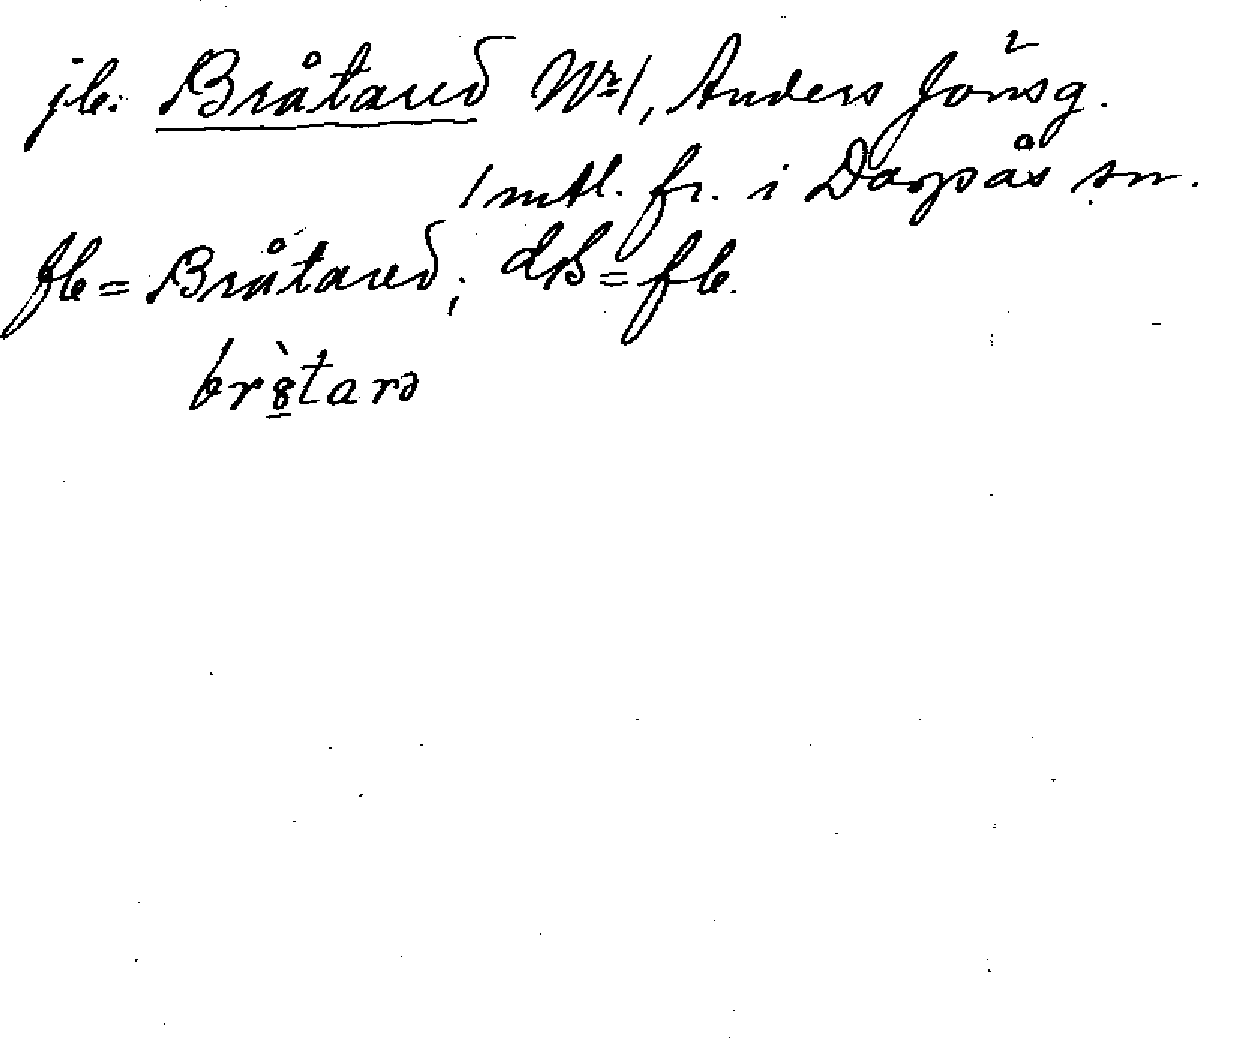 jb. Bråtared Nr 1, Anders Jönsg.
1 mtl. fr. i Dagsås sn.
fb = Bråtared; dB = fb.
br8̱̀tarə